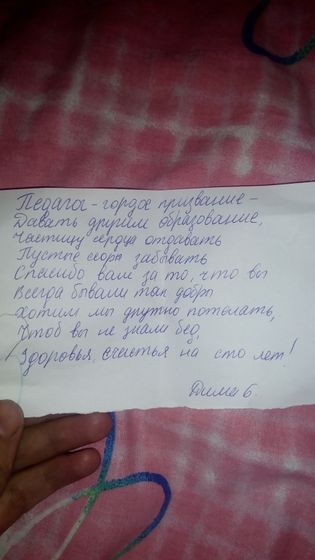 Педагог - гордое призвание -
Давать другим образование,
Частицу сердца отдавать
Пустые ссоры забывать
Спасибо вам за то, что вы
Всегда бывали так добры
Хотим мы дружно пожелать,
Чтоб вы не знали бед,
Здоровья, счастья на сто лет!
Дима Б.